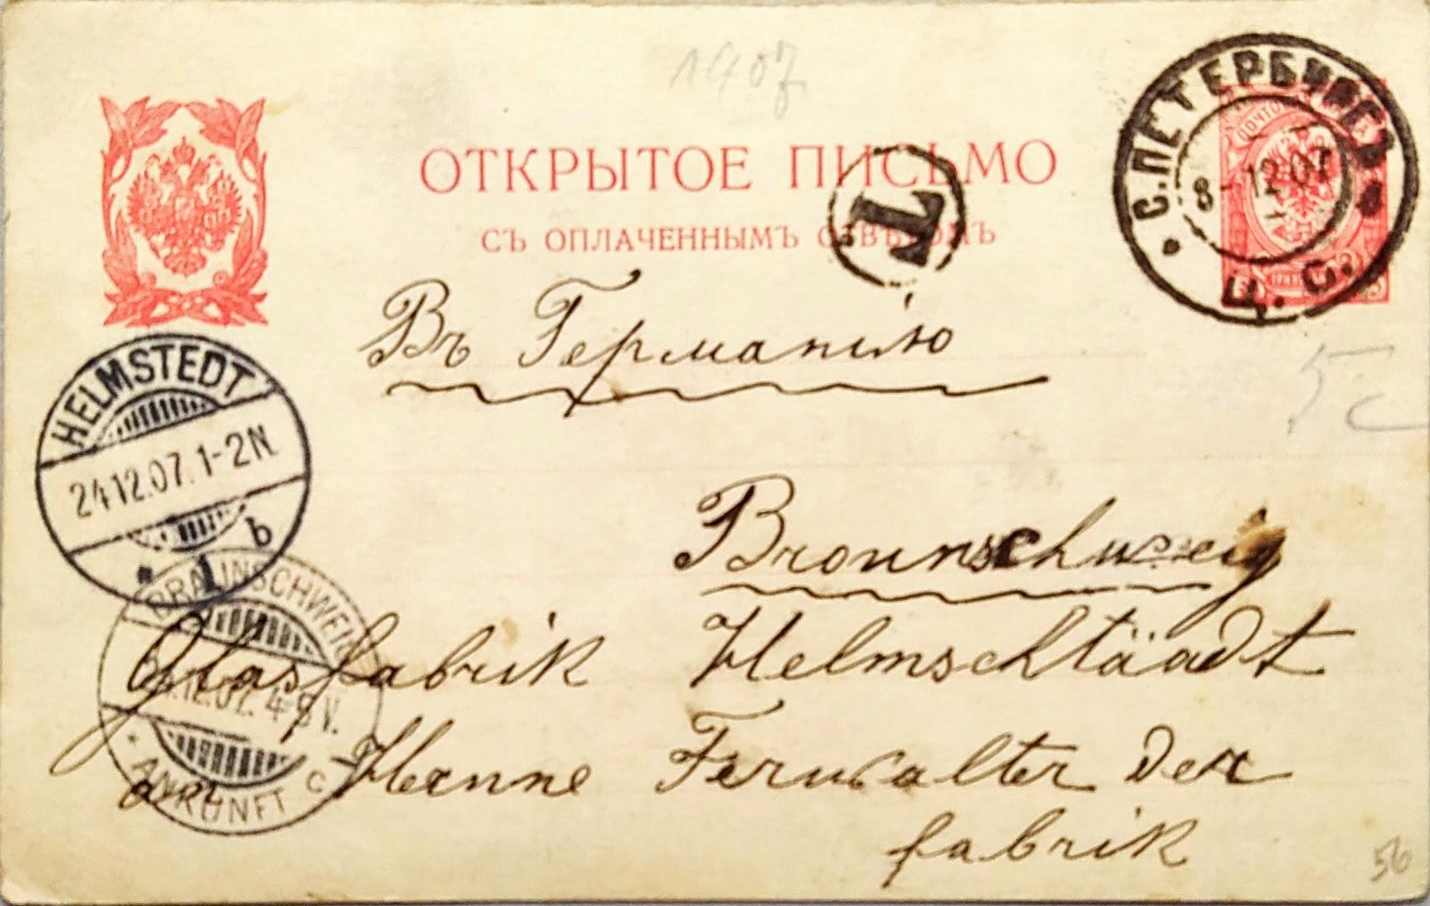 1907
ОТКРЫТОЕ ПИСЬМО
СЪ ОПЛАЧЕННЫМЪ ОТВѢТОМЪ
T
С.ПЕТЕРБУРГЪ
8-12 07
Ц. С.
Въ Германію
HELMSTEDT
24.12.07. 1-2N
1 b
5c
Brounschweig
Glasfabrik Helmschtäadt
an Herrne Ferwalter der
fabrik
BRAUNSCHWEIG
12.07. 4-5V.
ANKUNFT C
56